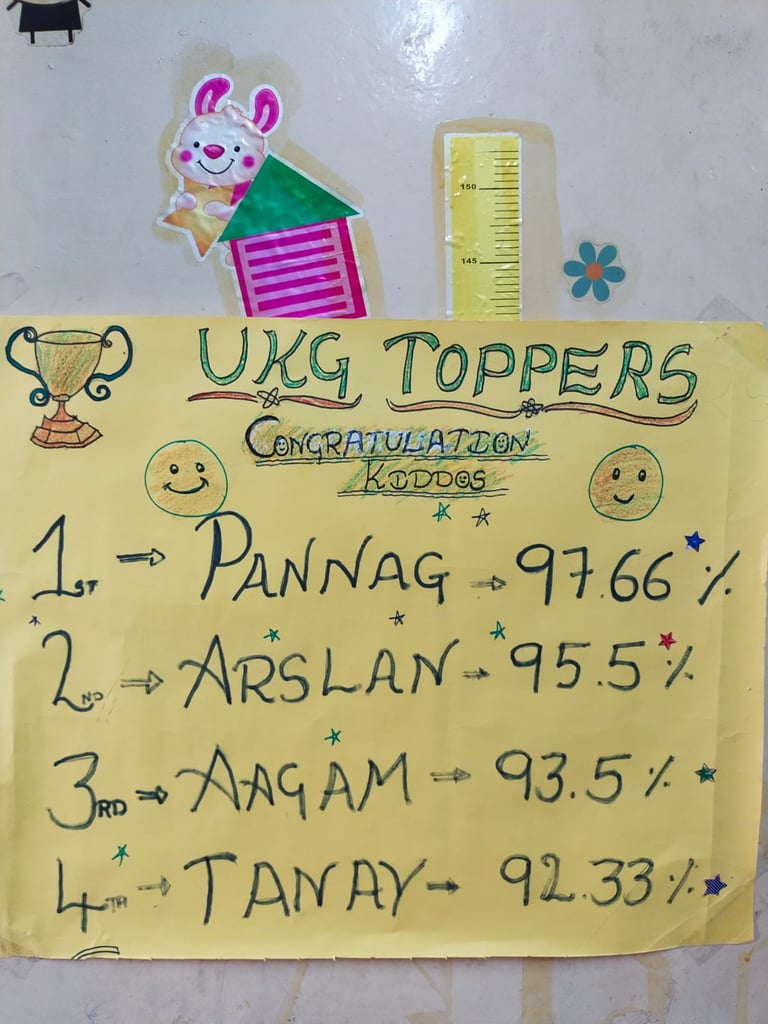 150
145
UKG TOPPERS
CONGRATULATION
KIDDOS
1ST → PANNAG → 97.66 %
2ND → ARSLAN → 95.5 %
3RD → AAGAM → 93.5 %
4TH → TANAY → 92.33 %